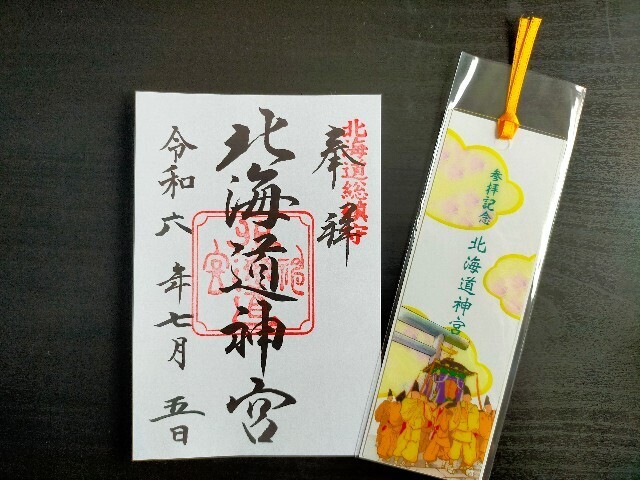 北海道総鎮守
奉拝
北海道神宮
令和六年七月五日
参拝記念
北海道神宮